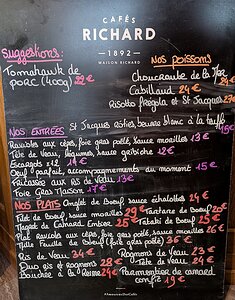 CAFÉS
RICHARD
1892
MAISON RICHARD
Suggestions:
Nos poissons
Tomahawk de
PORC (400g) 22 €
Choucroute de la Mer
24 €
Cabillaud 24 €
Risotto frégola et St Jacques 27€
Nos ENTRÉES
St Jacques rôties, beurre blanc à la truffe
15 €
Ravioles aux cèpes, foie gras poêlé, sauce morilles 13 €
Tête de veau, légumes, sauce gribiche 12 €
Escargots x12 14 €
Oeuf parfait, accompagnements du moment 15 €
Fricassée aux Ris de Veau 13 €
Foie Gras Maison 17 €
Nos PLATS
Onglet de Boeuf sauce échalotes 24 €
Filet de boeuf sauce morilles 29 €
Tartare de Boeuf 20€
Magret de Canard Entier 25 €
Tataki de Boeuf 25 €
Plat ravioles aux cèpes, foie gras poêlé, sauce morilles 26 €
Mille Feuille de Boeuf (foie gras poêlé) 36 €
Ris de Veau 34 €
Rognons de Veau 23 €
Duo ris et rognons 28 €
Tête de Veau 24 €
Bouchée à la Reine 24 €
Parmentier de canard
confit 19 €